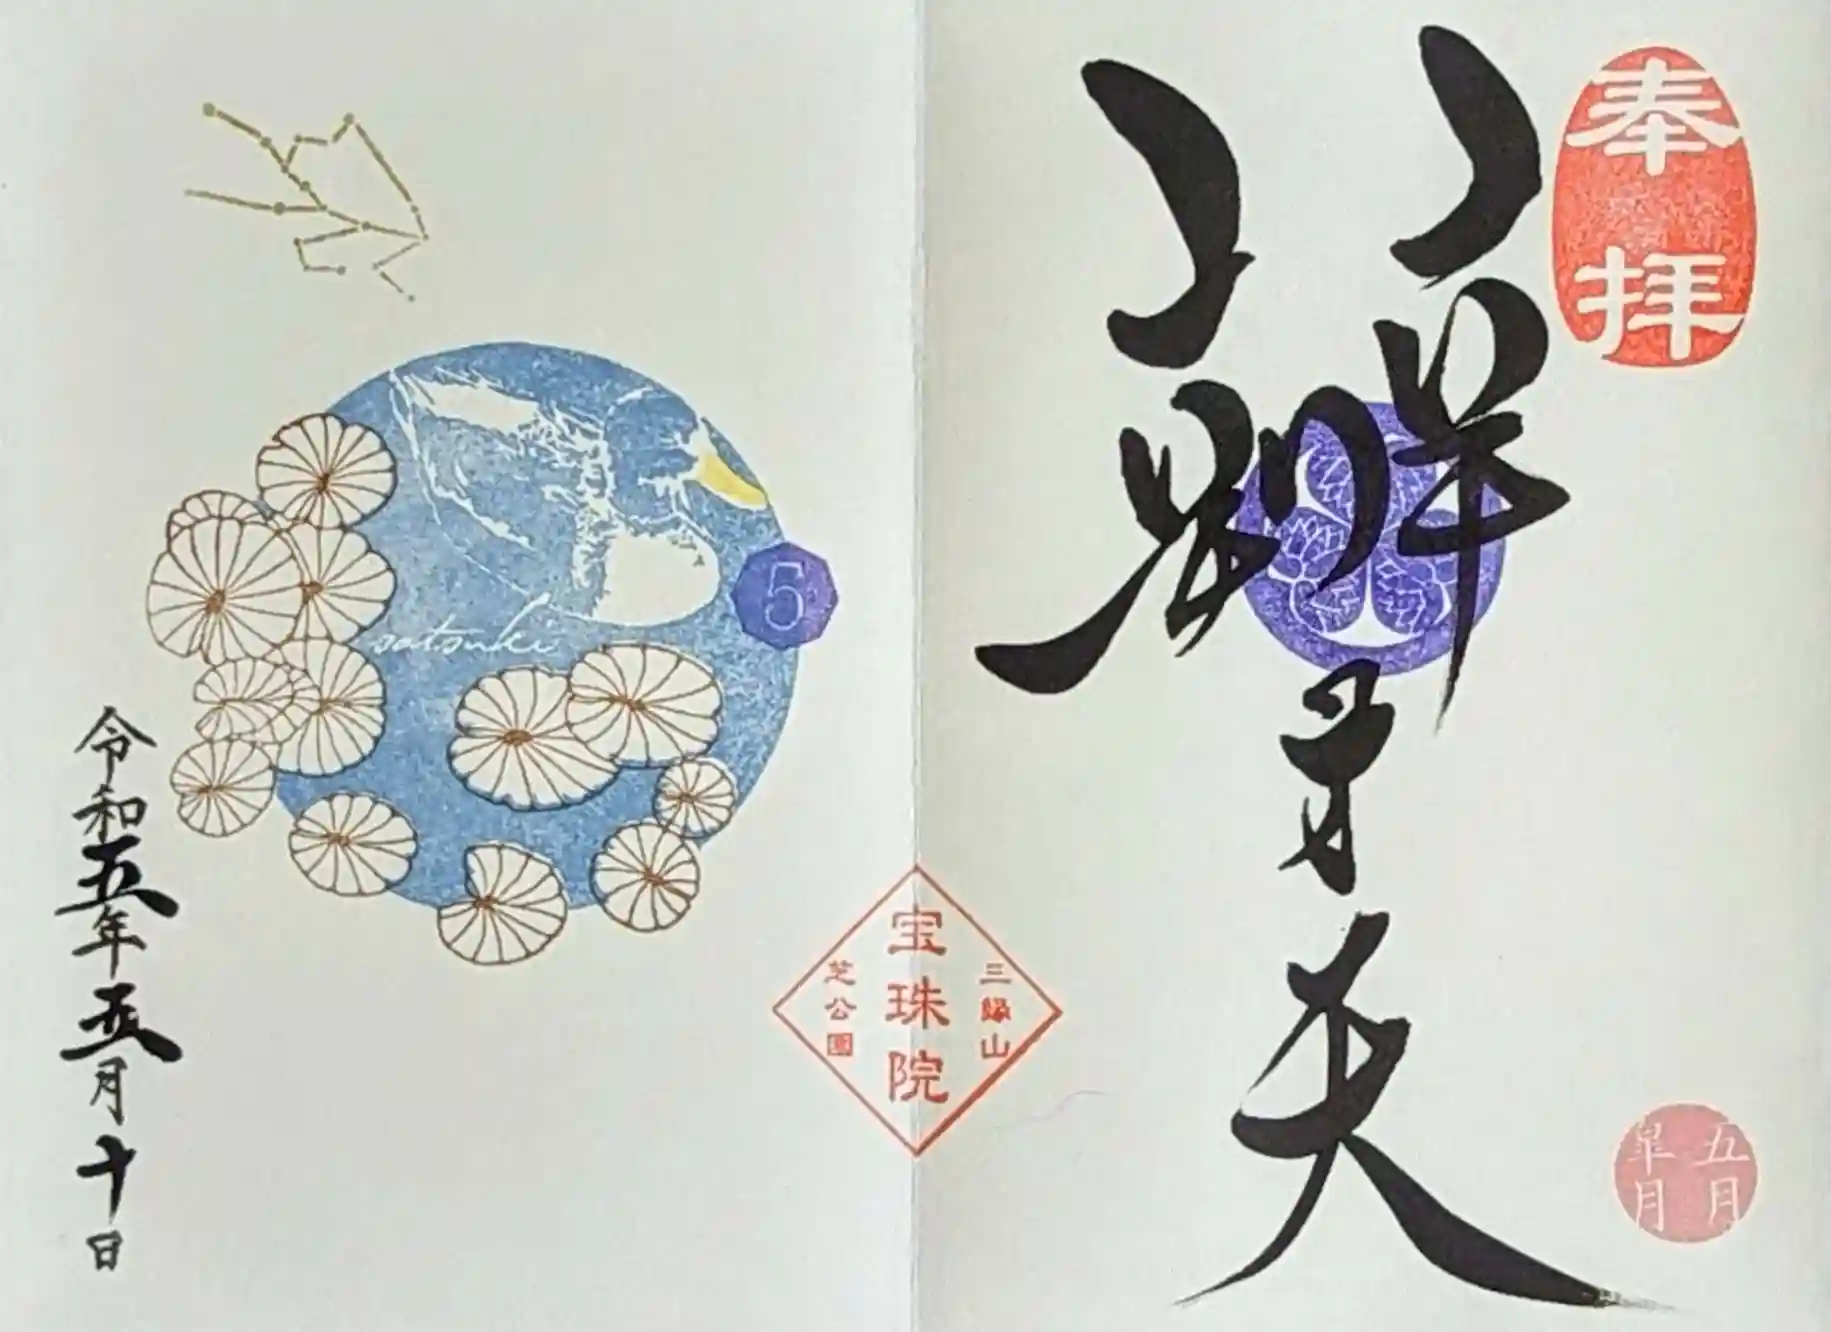 奉拝
辨才天
五月
皐月
三縁山
宝珠院
芝公園
5
satsuki
令和五年五月十日